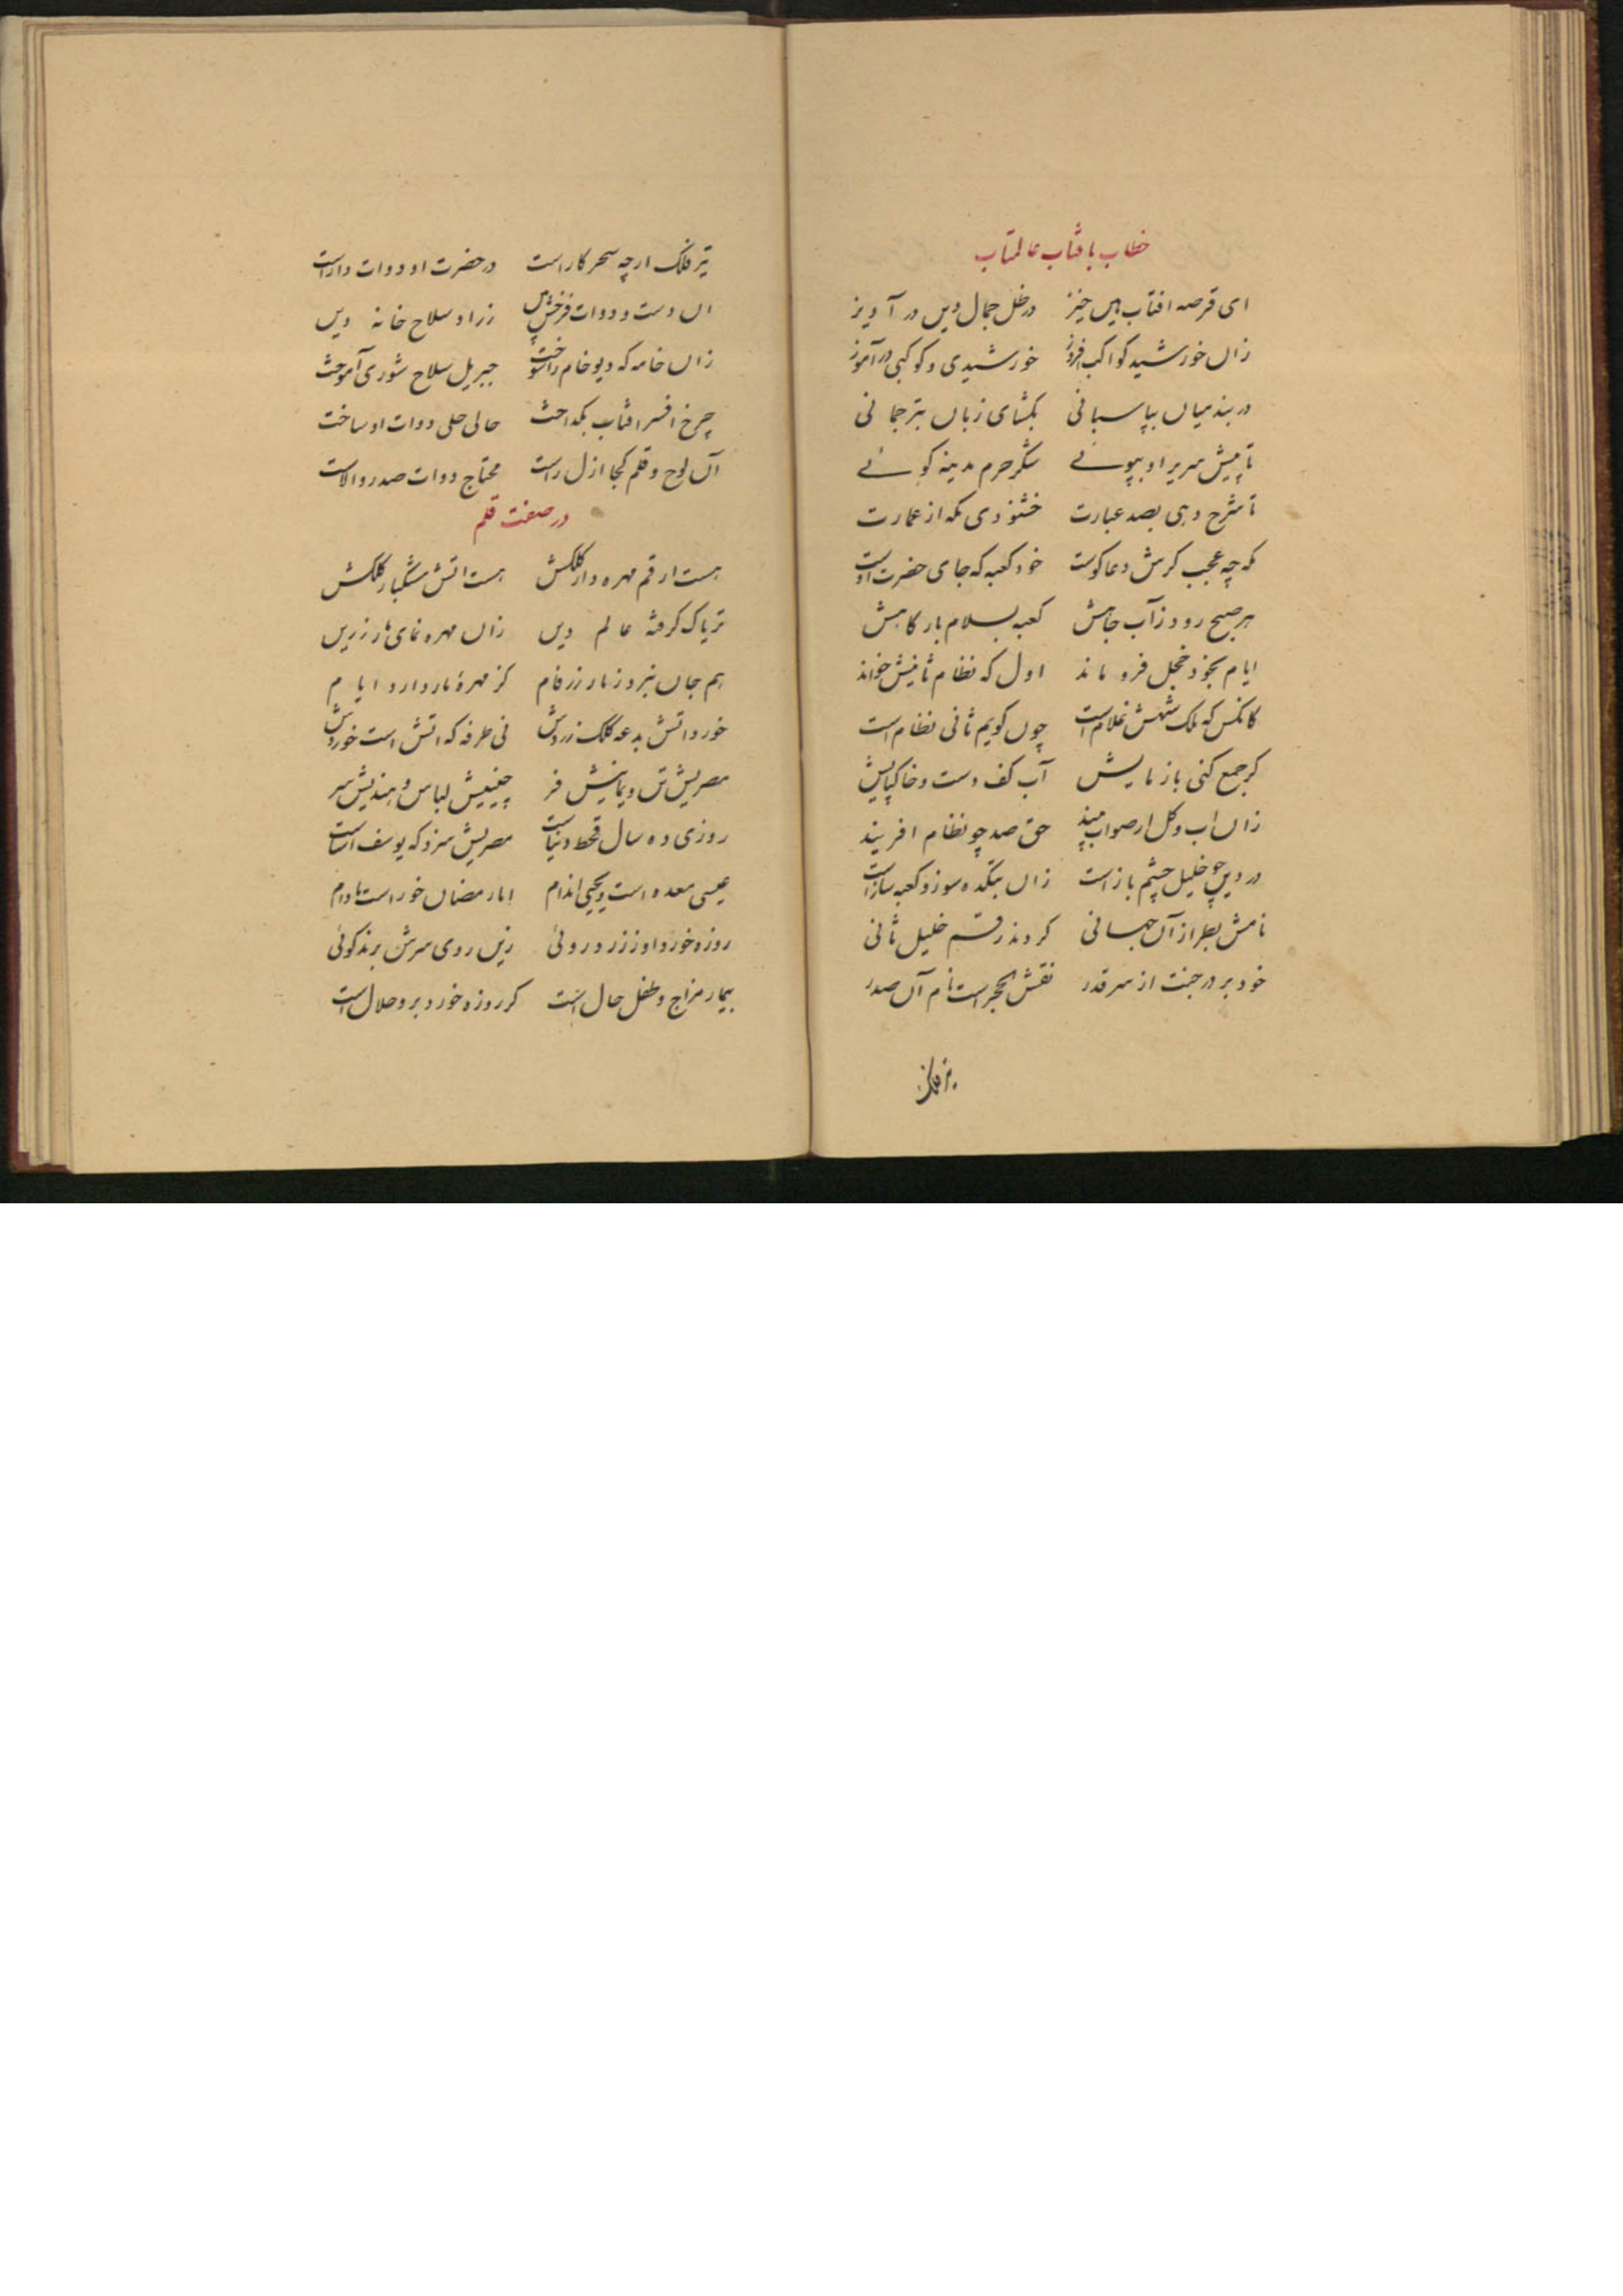 خطاب بافتاب عالمتاب
ای قرصه افتاب هین خیز در ظل جمال دین در آویز
زان خورشید کواکب افروز خورشیدی و کوکبی در آموز
در بند میان بپاسبانی بکشای زبان بترجمانی
تا پیش سریر او بپوئے شکر حرم مدینه کوئے
تا شرح دهی بصد عبارت خشنودی مکه از عمارت
مکه چه عجب کرش دعا کوست خود کعبه که جای حضرت اوست
هر صبح رود ز آب جاهش کعبه بسلام بارکاهش
ایام بخود خجل فرو ماند اول که نظام ثانیش خواند
کانکس که ملک شهش غلام است چون کویم ثانی نظام است
کر جمع کنی باز مایش آب کف دست و خاکپایش
زان اب و کل ار صواب بیند حق صد چو نظام افریند
در دین چو خلیل چشم باز است زان بتکده سوز و کعبه ساز است
نامش بطراز آن جهانی کردند رقم خلیل ثانی
خود بر در جنت از سر قدر نقش الحجر است نام آن صدر
تیر فلک
تیر فلک ارچه سحر کار است در حضرت او دوات دار است
ان دست و دوات فرخش بین زراد سلاح خانه دین
زان خامه که دیو خام را سوخت جبریل سلاح شوری آموخت
چرخ افسر افتاب بکداخت حالی حلی دوات او ساخت
آن لوح و قلم کجا ازل راست محتاج دوات صدر والاست
در صفت قلم
هست ارقم مهره دار کلکش هست اتش مشکبار کلکش
تریاک کرفته عالم دین زان مهره نمای مار زرین
هم جان نبرد ز مار زرفام کز مهرهٔ مار دارد ایام
خورد اتش بدعه کلک زردش نی طرفه که اتش است خوردش
مصریش تن و یمانیش فر چینیش لباس و هندیش سر
روزی ده سال قحط دنیاست مصریش سزد که یوسف اساست
عیسی معده است و یحیی اندام اما رمضان خور است مادام
روزه خورد او ز زرد روئی زین روی سرش برند کوئی
بیمار مزاج و طفل حال است کر روزه خورد برو حلال است